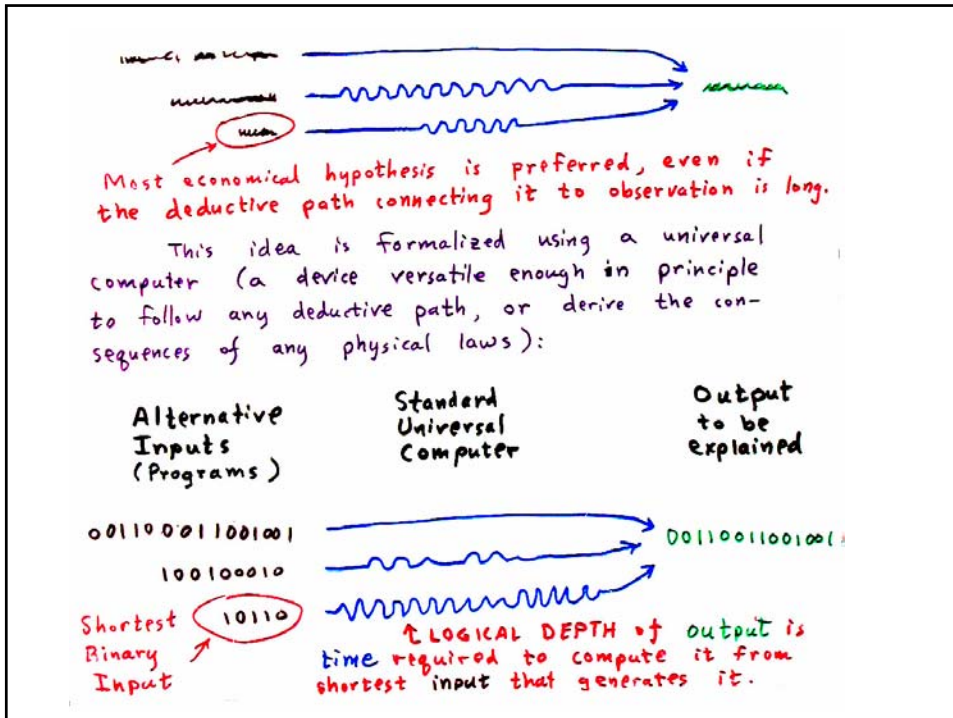 Most economical hypothesis is preferred, even if
the deductive path connecting it to observation is long.
This idea is formalized using a universal
computer (a device versatile enough in principle
to follow any deductive path, or derive the con-
sequences of any physical laws):
Alternative
Inputs
(Programs)
Standard
Universal
Computer
Output
to be
explained
001100011001001
100100010
10110
0011001100100
Shortest
Binary
Input
↑ LOGICAL DEPTH of output is
time required to compute it from
shortest input that generates it.